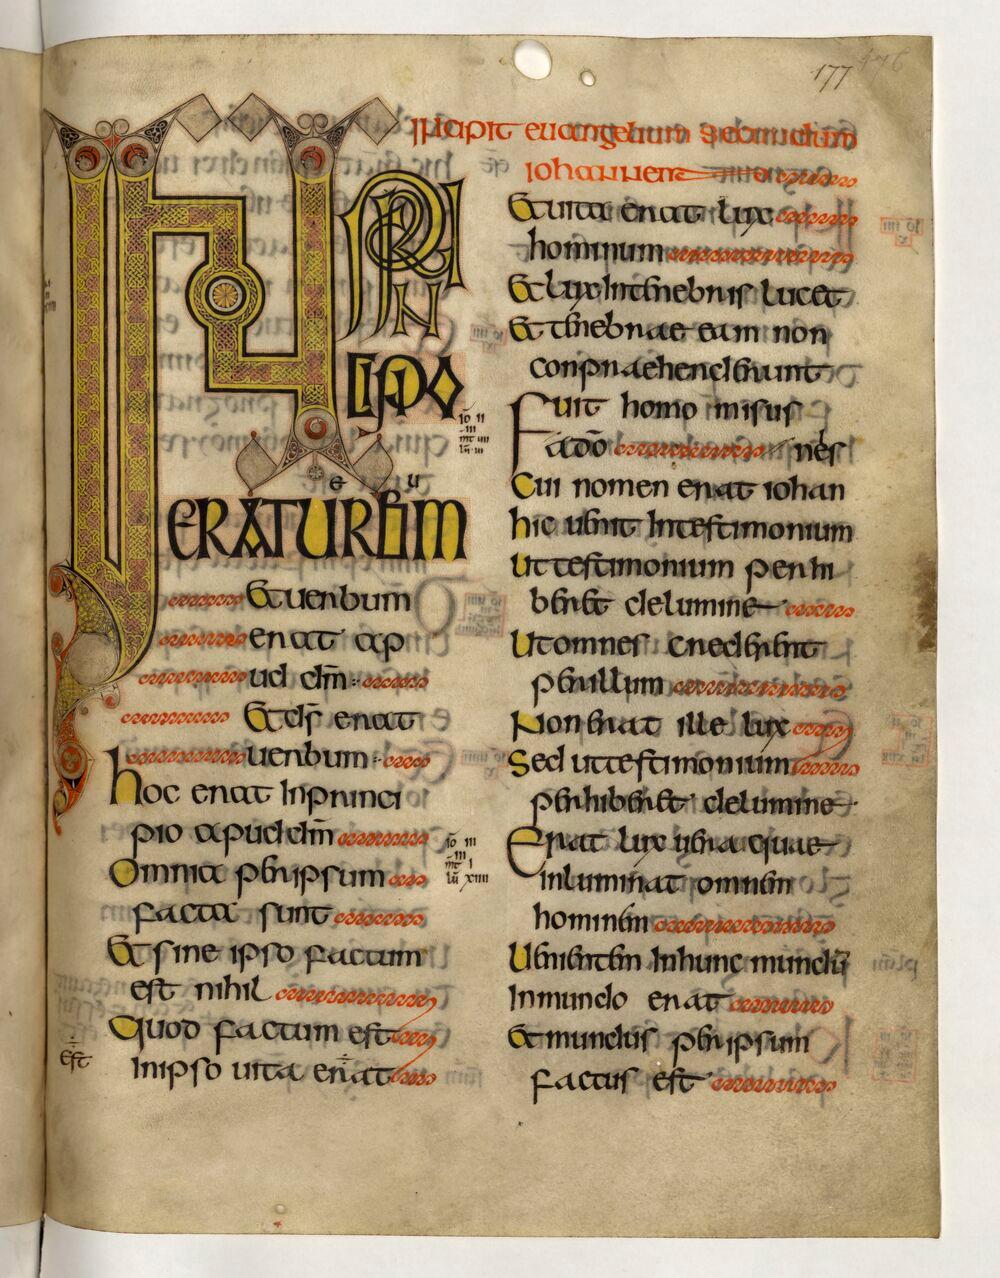 177 476
INcipit euangelium secundum
Iohannem
IN PRIN
CIPIO
e u
ERATUERBUM
Et uerbum
erat ap
ud dm̄
Et ds̄ erat
uerbum
hoc erat Inprinci
pio apud dm̄
Omnia per ipsum
facta sunt
Et sine ipso factum
est nihil
Quod factum est
est
Inipso uita erat
Io II
III
mt III
Lū III
Io III
III
mt I
Lū XIIII
Et uita erat lux
hominum
Et lux Intenebris lucet
Et tenebrae eam non
conpraehenderunt
Fuit homo misus
ado̅ nes
Cui nomen erat iohan
hic uenit Intestimonium
Ut testimonium perhi
beret delumine
Ut omnes crederent
per illum
Non erat ille lux
Sed ut testimonium
perhiberet delumine
Erat lux uera quae
inluminat omnem
hominem
Uenientem Inhunc mundū
Inmundo erat
Et mundus per ipsum
factus est